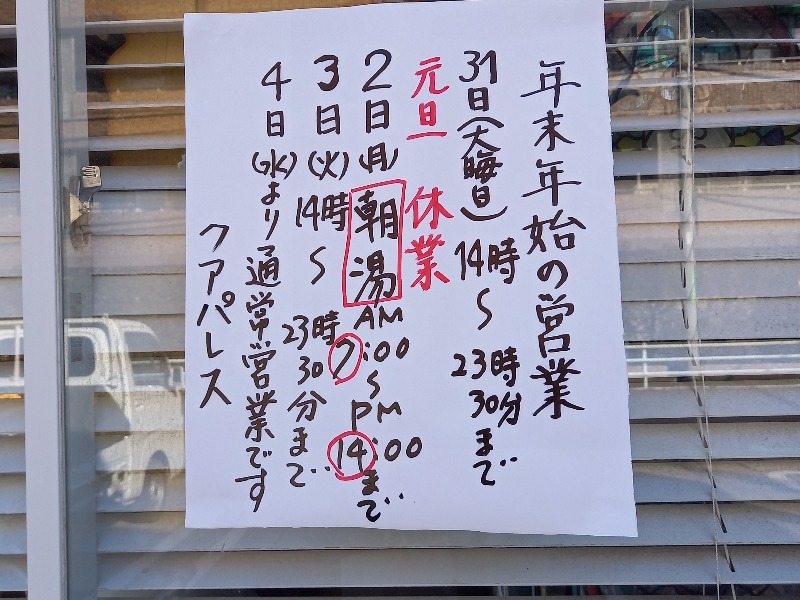 年末年始の営業
31日(大晦日)14時～23時30分まで
元旦 休業
2日(月)朝湯AM7:00～PM14:00まで
3日(火)14時～23時30分まで
4日(水)より通常営業です
クアパレス